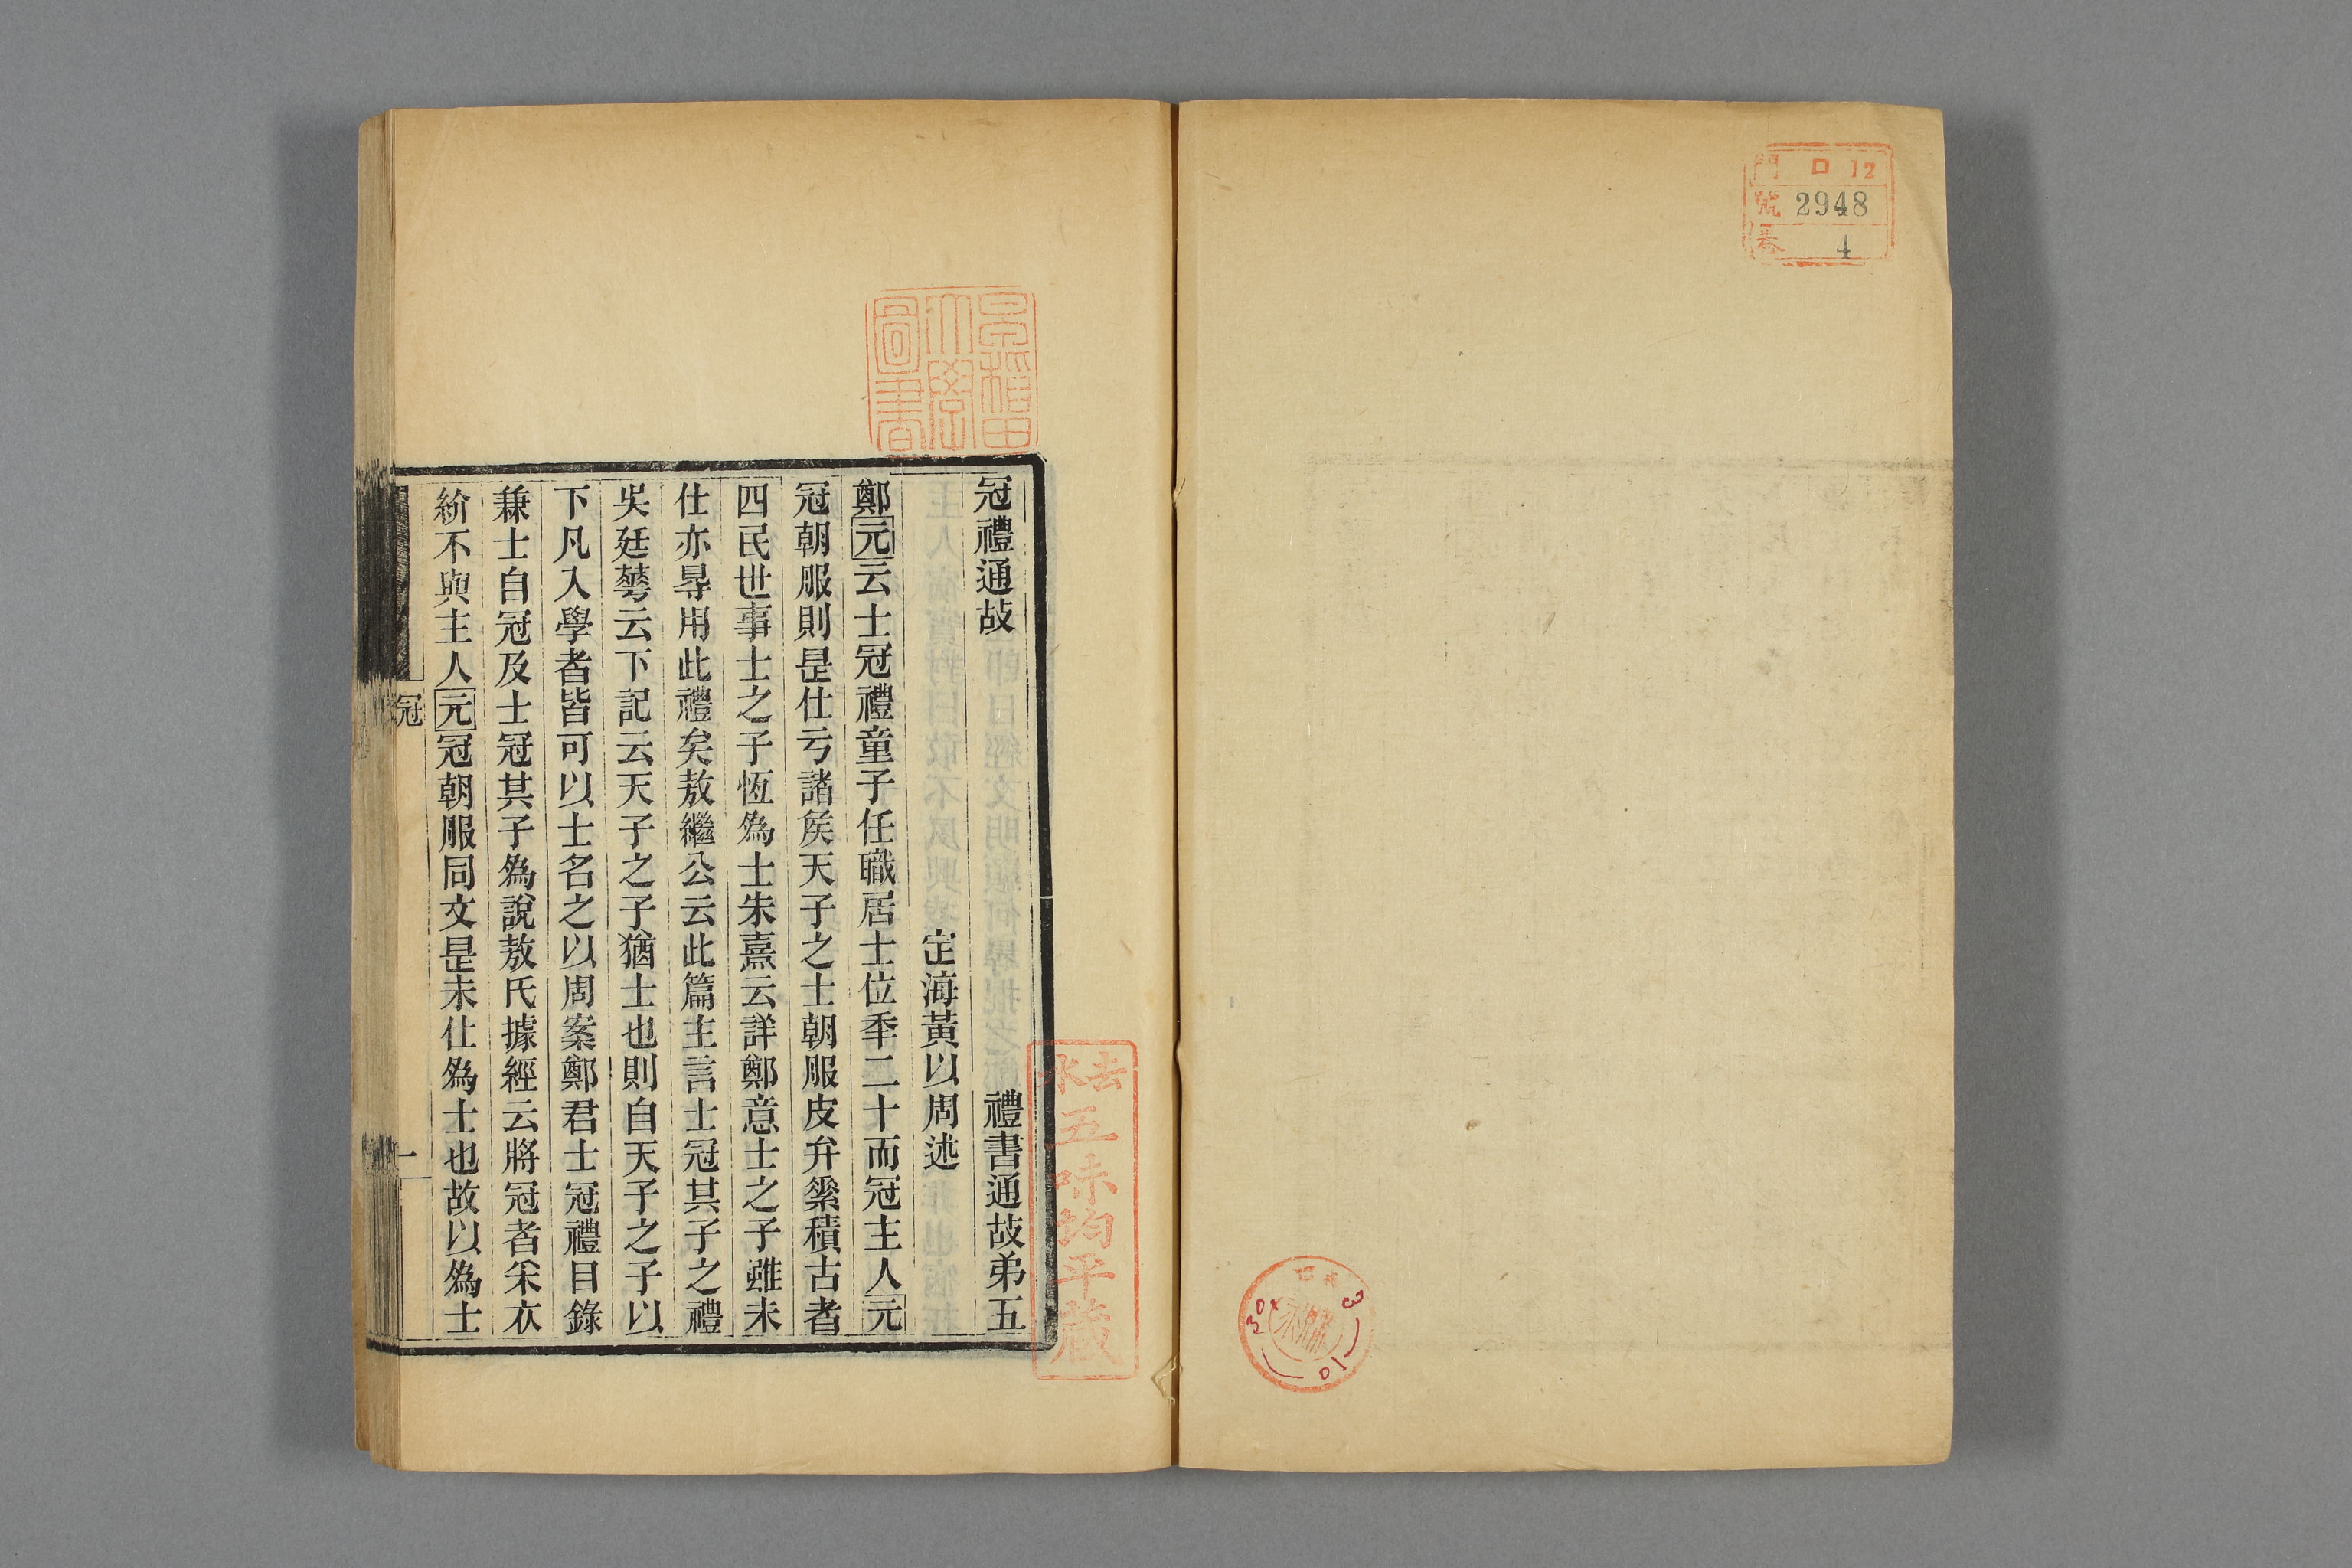 門 口 12
號 2948
卷 4
早稲田
大學
圖書
冠禮通故 禮書通故弟五
定海黃以周述
鄭元云士冠禮童子任職居士位秊二十而冠主人元
冠朝服則昰仕亏諸矦天子之士朝服皮弁素積古者
四民世事士之子恆爲士朱熹云詳鄭意士之子雖未
仕亦㝵用此禮矣敖繼公云此篇主言士冠其子之禮
吳廷華云下記云天子之子猶士也則自天子之子以
下凡入學者皆可以士名之以周案鄭君士冠禮目錄
兼士自冠及士冠其子爲說敖氏據經云將冠者釆衣
紒不與主人元冠朝服同文昰未仕爲士也故以爲士
冠
一
五味均平藏